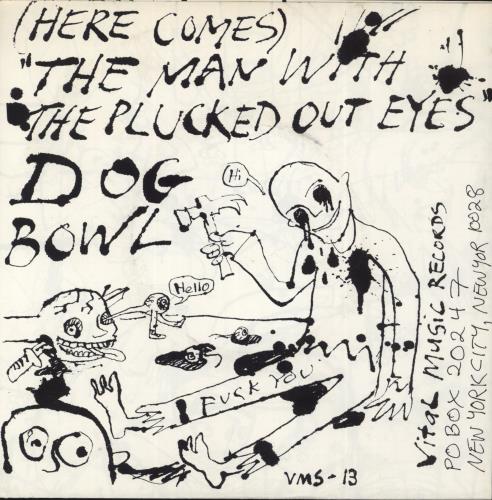 (HERE COMES)
"THE MAN WITH
THE PLUCKED OUT EYES"
DOG
BOWL
Hi
Hello
FUCK YOU
VMS-13
VITAL MUSIC RECORDS
PO BOX 20247
NEW YORK CITY, NEW YOR 10028